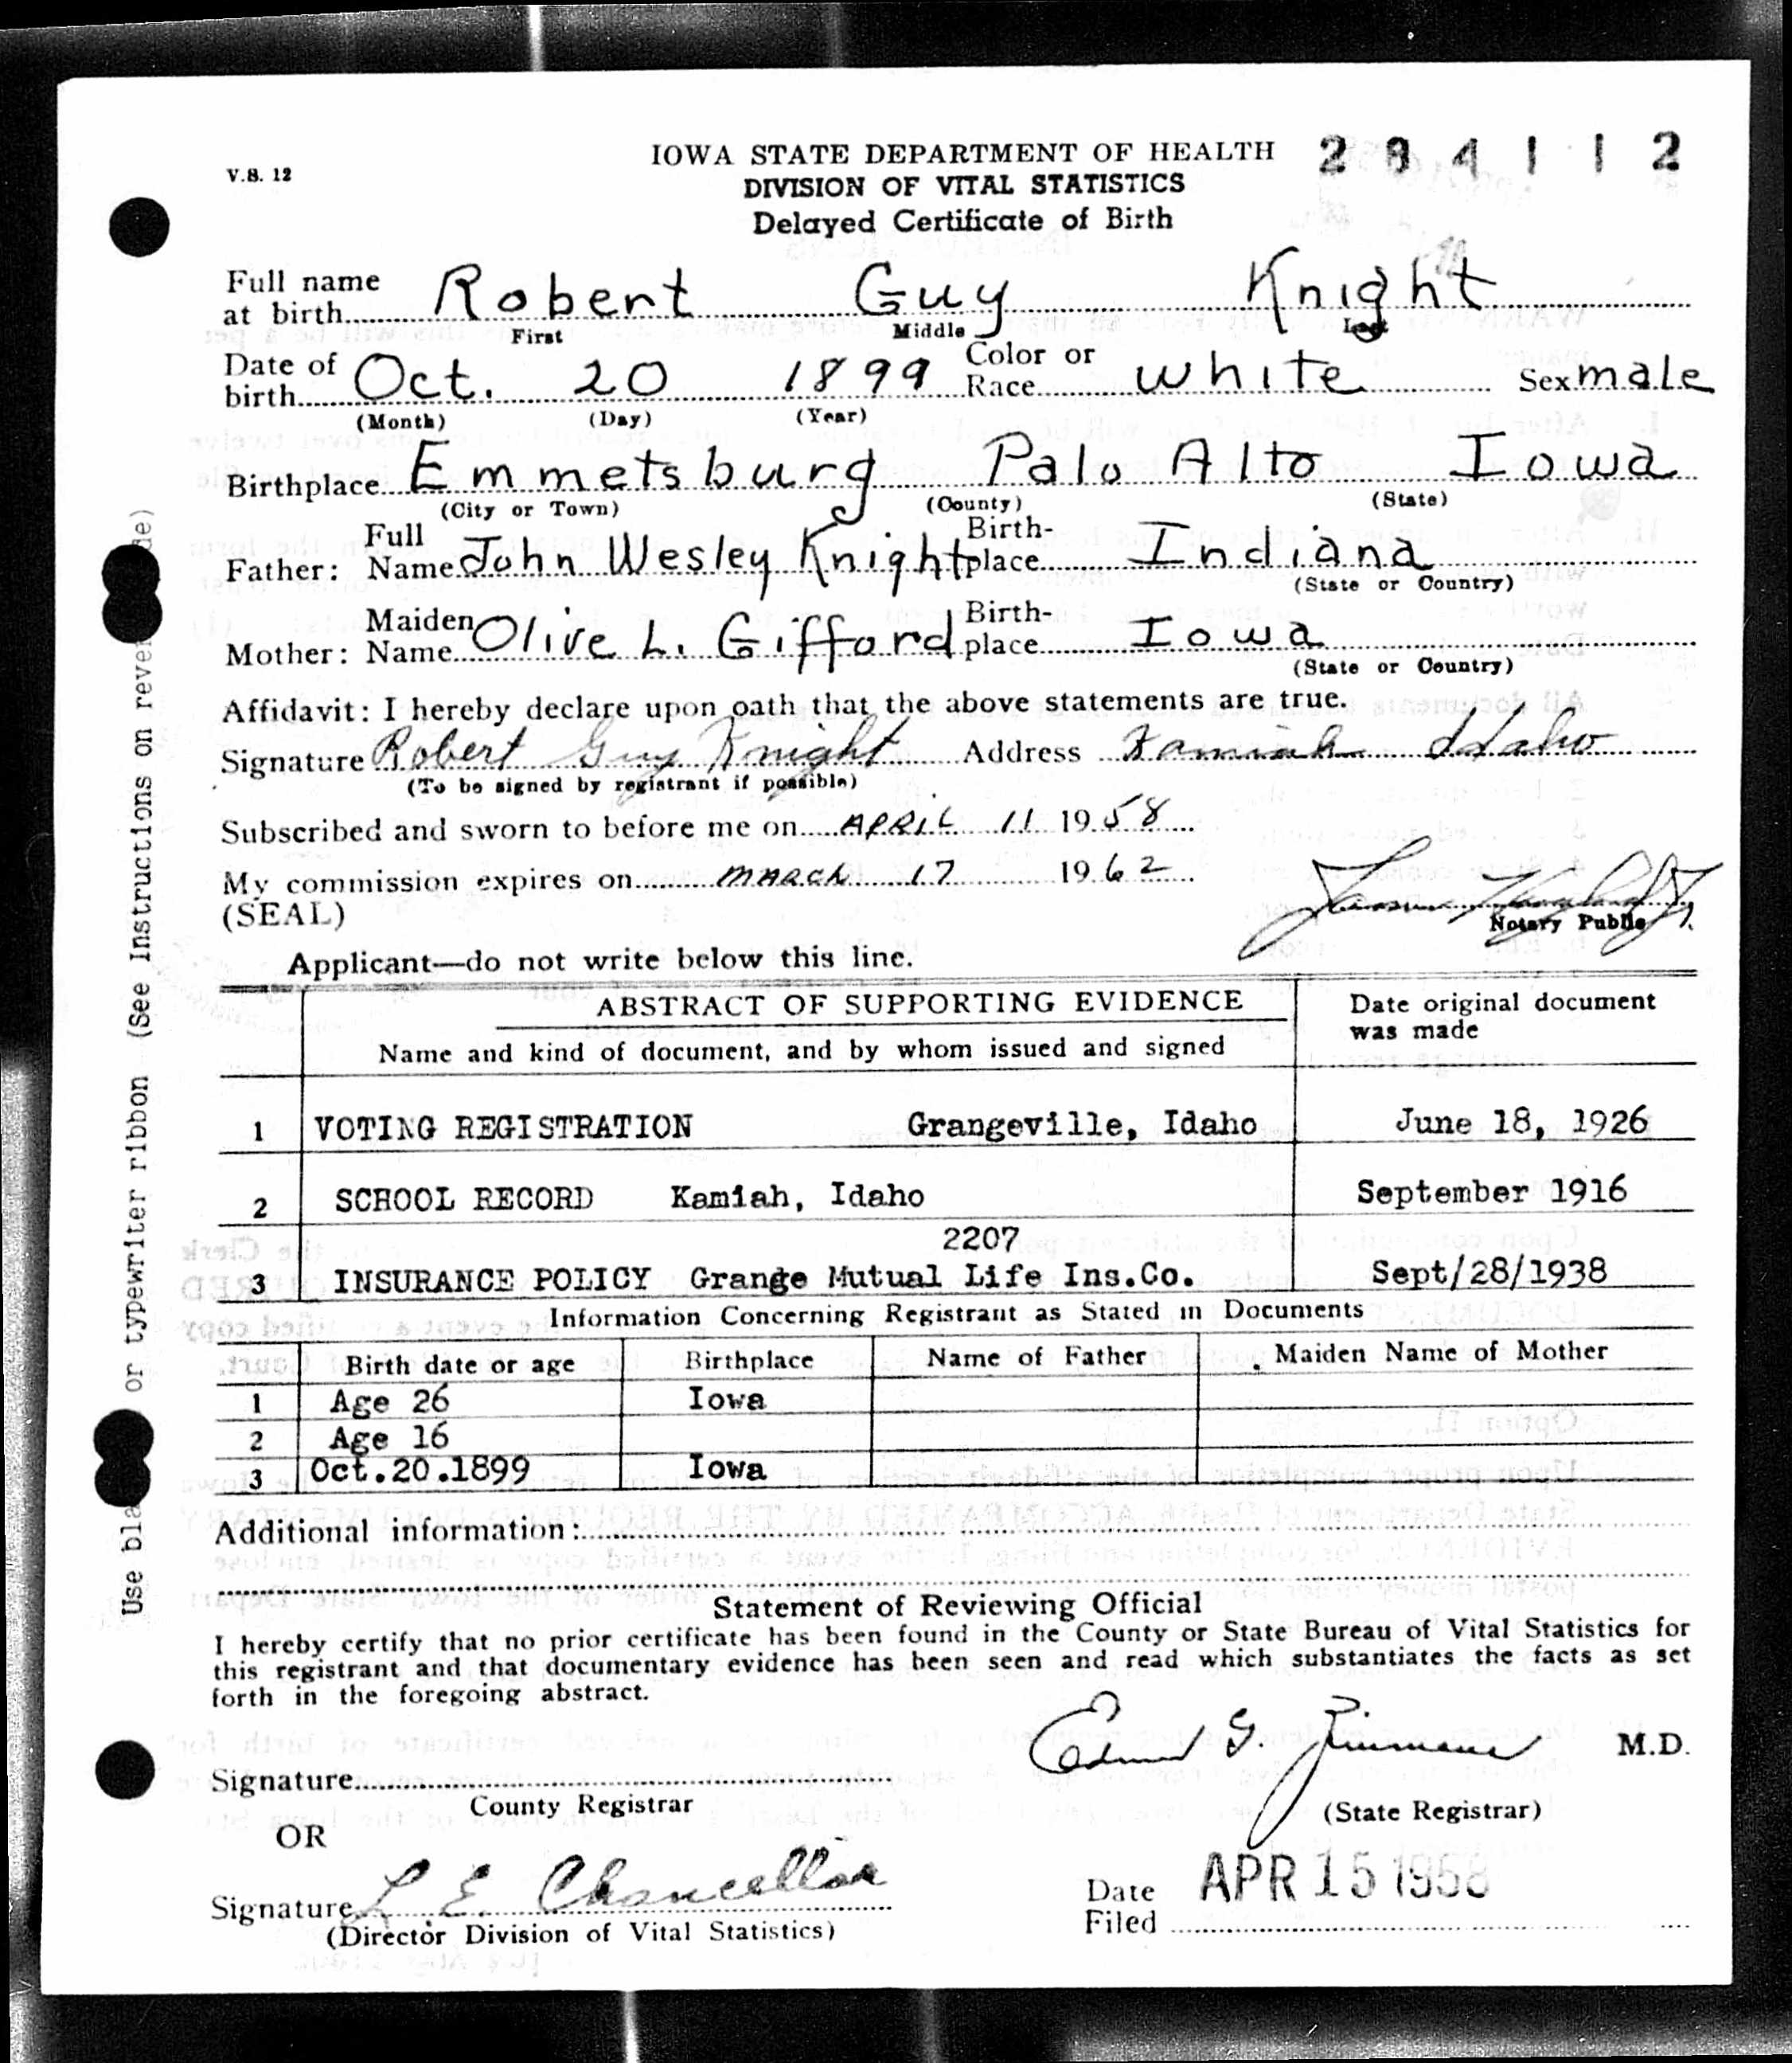 V.S. 12
IOWA STATE DEPARTMENT OF HEALTH
DIVISION OF VITAL STATISTICS
Delayed Certificate of Birth
Full name at birth Robert Guy Knight
First Middle Last
Date of birth Oct. 20 1899 Color or Race white Sex male
(Month) (Day) (Year)
Birthplace Emmetsburg Palo Alto Iowa
(City or Town) (County) (State)
Father: Full Name John Wesley Knight Birth-place Indiana
(State or Country)
Mother: Maiden Name Olive L. Gifford Birth-place Iowa
(State or Country)
Affidavit: I hereby declare upon oath that the above statements are true.
Signature Robert Guy Knight Address Kamiah Idaho
(To be signed by registrant if possible)
Subscribed and sworn to before me on APRIL 11 1958
My commission expires on MARCH 17 1962
(SEAL)
Notary Public
Applicant—do not write below this line.
ABSTRACT OF SUPPORTING EVIDENCE
Name and kind of document, and by whom issued and signed
Date original document was made
1 VOTING REGISTRATION Grangeville, Idaho June 18, 1926
2 SCHOOL RECORD Kamiah, Idaho September 1916
2207
3 INSURANCE POLICY Grange Mutual Life Ins.Co. Sept/28/1938
Information Concerning Registrant as Stated in Documents
Birth date or age Birthplace Name of Father Maiden Name of Mother
1 Age 26 Iowa
2 Age 16
3 Oct.20.1899 Iowa
Additional information:
Statement of Reviewing Official
I hereby certify that no prior certificate has been found in the County or State Bureau of Vital Statistics for
this registrant and that documentary evidence has been seen and read which substantiates the facts as set
forth in the foregoing abstract.
M.D.
Signature
County Registrar
(State Registrar)
OR
Signature L. E. Chancellor
(Director Division of Vital Statistics)
Date Filed APR 15 1958
Use bla or typewriter ribbon (See Instructions on rever de)